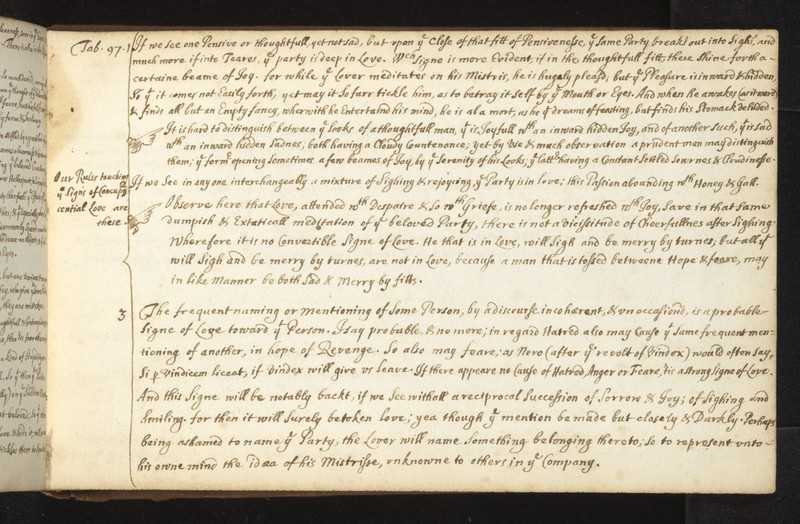 Tab. 97. 1
If we see one Pensive or thoughtfull, yet not sad, but upon yͤ Close of that fitt of Pensivenesse, yͤ same Party breaks out into Sighs, and
much more if into Teares, yͤ party is deep in Love. Wᶜʰ Signe is more Evident, if in the thoughtfull fitts, there Shine forth a
certaine beame of Joy. for while yͤ Lover meditates on his Mistris, he is hugely pleasd, but yͤ Pleasure is inward & hidden,
So yͭ it comes not Easily forth, yet may it so farr tickle him, as to betray it self by yͤ Mouth or Eyes. And when he awakes (as it were)
& finds all but an Empty fancy, wherwith he Entertaind his mind, he is al a mort, as he yͭ dreams of feasting, but finds his Stomack deluded.
It is hard to distinguish between yͤ looks of a thoughtfull man, yͭ is Joyfull wᵗʰ an inward hidden Joy, and of another such, yͭ is sad
wᵗʰ an inward hidden Sadnes; both having a Cloudy Countenance; yet by Use & much observation a prudent man may distinguish
them; yͤ formʳ opening Sometimes a few beames of Joy, by yͤ Serenity of his Looks; yͤ lattʳ having a Constant Settled Sowrnes & Cloudinesse.
Our Rules touching
yͤ Signs of Concupis
cential Love are
these.
If we See in any one interchangeably a mixture of Sighing & rejoycing, yͤ Party is in love; this Passion abounding wᵗʰ Honey & Gall.
Observe here that Love, attended wᵗʰ Despaire & So wᵗʰ Griefe, is no longer refreshed wᵗʰ Joy, Save in that Same
dumpish & Extaticall meditation of yͤ beloved Party, there is not a Vicissitude of Cheerfullnes after Sighing.
Wherefore it is no Convertible Signe of Love. He that is in Love, will Sigh and be merry by turnes, but all yͭ
will Sigh and be merry by turnes, are not in Love, because a man that is tossed betweene Hope & feare, may
in like Manner be both Sad & Merry by fitts.
3
The frequent naming or mentioning of Some Person, by a discourse incohærent, & unoccasiond, is a probable
Signe of Love toward yͭ Person. I say probable, & no more; in regard Hatred also may Cause yͤ Same frequent men-
tioning of another, in hope of Revenge. So also may feare; as Nero (after yͤ revolt of Vindex) would often Say,
Si p Vindicem liceat, if Vindex will give us leave. If there appeare no Cause of Hatred, Anger or Feare, tis a strong Signe of Love.
And this Signe will be notably backt, if we See withall a reciprocal Succession of Sorrow & Joy; of Sighing and
Smiling. for then it will Surely betoken Love; yea though yͤ mention be made but closely & Darkly. Perhaps
being ashamed to name yͤ Party, the Lover will name Something belonging thereto; So to represent unto
his owne mind the idæa of his Mistrisse, unknowne to others in yͤ Company.